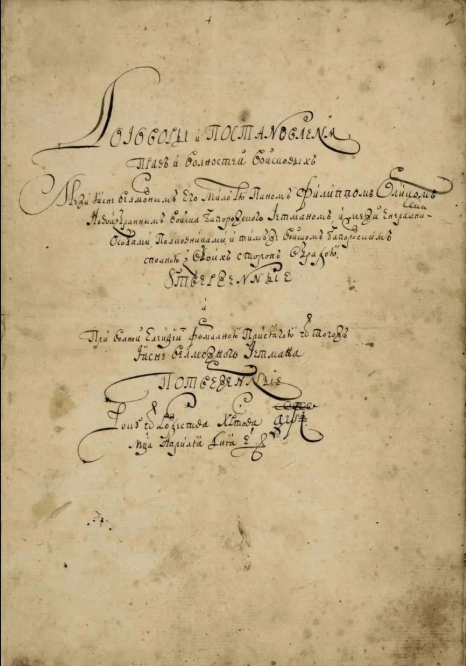 2
Договоры и Постановленя
Правъ и волностей Войсковыхъ
Межи Ясне велможнымъ Его Мл҃сти Паномъ Филиппомъ Орликомъ
Новоизбраннымъ Войска Запорожского Гетманомъ, и межи Енералны-
ми Особами Полковниками и тимъ же Войскомъ Запорожскимъ
сполною з обоихъ сторонъ обрадою.
Утверженные
и
При волной Елекцїи формалною Присягою ѿ тогожъ
Ясне велможного Гетмана
Потверженные
Року ѿ Рождества Хр҃това ҂аѱі
Мц҃а Априлїа дня е҃